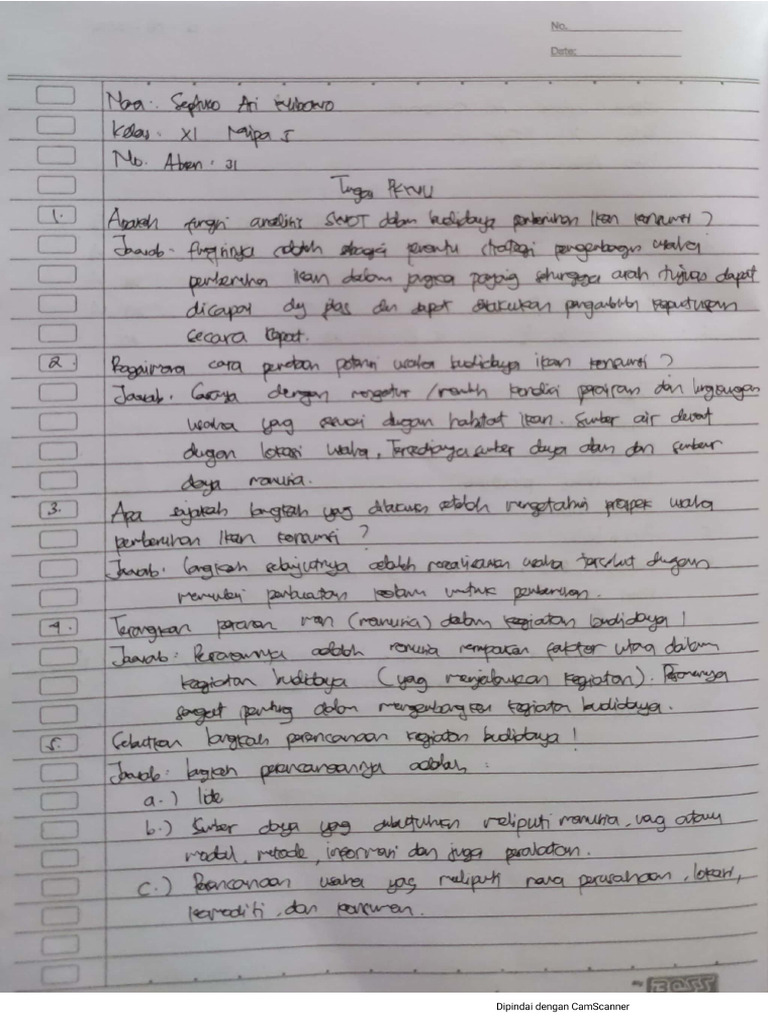 No.
Date:
Nama : Septuco Ari
Kelas : XI Mipa I
No. Absen : 31
Tugas PKWU
1. Apakah fungsi analisis SWOT dalam budidaya pembenihan Ikan konsumsi ?
Jawab : fungsinya adalah sebagai penentu strategi pengembangan usaha
pembenihan Ikan dalam jangka panjang sehingga arah tujuan dapat
dicapai dg jelas dan dapat dilakukan pengambilan keputusan
secara cepat.
2. Bagaimana cara potensi usaha budidaya ikan konsumsi ?
Jawab : Caranya dengan mengatur / kondisi perairan dan lingkungan
usaha yang sesuai dengan habitat Ikan. Sumber air dekat
dengan lokasi usaha, Tersedianya sumber daya alam dan sumber
daya manusia.
3. Apa sajakah langkah yang dilakukan setelah mengetahui prospek usaha
pembenihan Ikan konsumsi ?
Jawab : langkah selanjutnya adalah merealisasikan usaha tersebut dengan
memulai pembuatan kolam untuk pembenihan.
4. Terangkan peranan man (manusia) dalam kegiatan budidaya !
Jawab : Peranannya adalah manusia merupakan faktor utama dalam
kegiatan budidaya (yang menjalankan kegiatan). Perannya
sangat penting dalam mengembangkan kegiatan budidaya.
5. Sebutkan langkah perencanaan kegiatan budidaya !
Jawab : langkah perencanaannya adalah :
a.) Ide
b.) Sumber daya yang dibutuhkan meliputi manusia, uang atau
modal, metode, informasi dan juga peralatan.
c.) Perencanaan usaha yang meliputi nama perusahaan, lokasi,
komoditi, dan konsumen.
BOSS
Dipindai dengan CamScanner